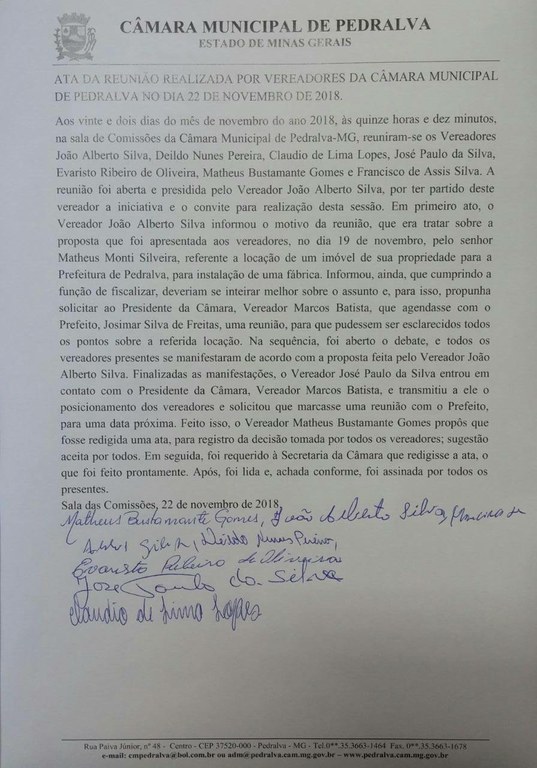 CÂMARA MUNICIPAL DE PEDRALVA
ESTADO DE MINAS GERAIS
ATA DA REUNIÃO REALIZADA POR VEREADORES DA CÂMARA MUNICIPAL
DE PEDRALVA NO DIA 22 DE NOVEMBRO DE 2018.
Aos vinte e dois dias do mês de novembro do ano 2018, às quinze horas e dez minutos,
na sala de Comissões da Câmara Municipal de Pedralva-MG, reuniram-se os Vereadores
João Alberto Silva, Deildo Nunes Pereira, Claudio de Lima Lopes, José Paulo da Silva,
Evaristo Ribeiro de Oliveira, Matheus Bustamante Gomes e Francisco de Assis Silva. A
reunião foi aberta e presidida pelo Vereador João Alberto Silva, por ter partido deste
vereador a iniciativa e o convite para realização desta sessão. Em primeiro ato, o
Vereador João Alberto Silva informou o motivo da reunião, que era tratar sobre a
proposta que foi apresentada aos vereadores, no dia 19 de novembro, pelo senhor
Matheus Monti Silveira, referente a locação de um imóvel de sua propriedade para a
Prefeitura de Pedralva, para instalação de uma fábrica. Informou, ainda, que cumprindo a
função de fiscalizar, deveriam se inteirar melhor sobre o assunto e, para isso, propunha
solicitar ao Presidente da Câmara, Vereador Marcos Batista, que agendasse com o
Prefeito, Josimar Silva de Freitas, uma reunião, para que pudessem ser esclarecidos todos
os pontos sobre a referida locação. Na sequência, foi aberto o debate, e todos os
vereadores presentes se manifestaram de acordo com a proposta feita pelo Vereador João
Alberto Silva. Finalizadas as manifestações, o Vereador José Paulo da Silva entrou em
contato com o Presidente da Câmara, Vereador Marcos Batista, e transmitiu a ele o
posicionamento dos vereadores e solicitou que marcasse uma reunião com o Prefeito,
para uma data próxima. Feito isso, o Vereador Matheus Bustamante Gomes propôs que
fosse redigida uma ata, para registro da decisão tomada por todos os vereadores; sugestão
aceita por todos. Em seguida, foi requerido à Secretaria da Câmara que redigisse a ata, o
que foi feito prontamente. Após, foi lida e, achada conforme, foi assinada por todos os
presentes.
Sala das Comissões, 22 de novembro de 2018.
Matheus Bustamante Gomes, João Alberto Silva,
Silva, Deildo Nunes Pereira,
Evaristo Ribeiro de Oliveira
Jose Paulo da Silva
Claudio de Lima Lopes
Rua Paiva Júnior, nº 48 - Centro - CEP 37520-000 - Pedralva - MG - Tel.0**.35.3663-1464 Fax. 0**.35.3663-1678
e-mail: cmpedralva@bol.com.br ou adm@pedralva.cam.mg.gov.br – www.pedralva.cam.mg.gov.br